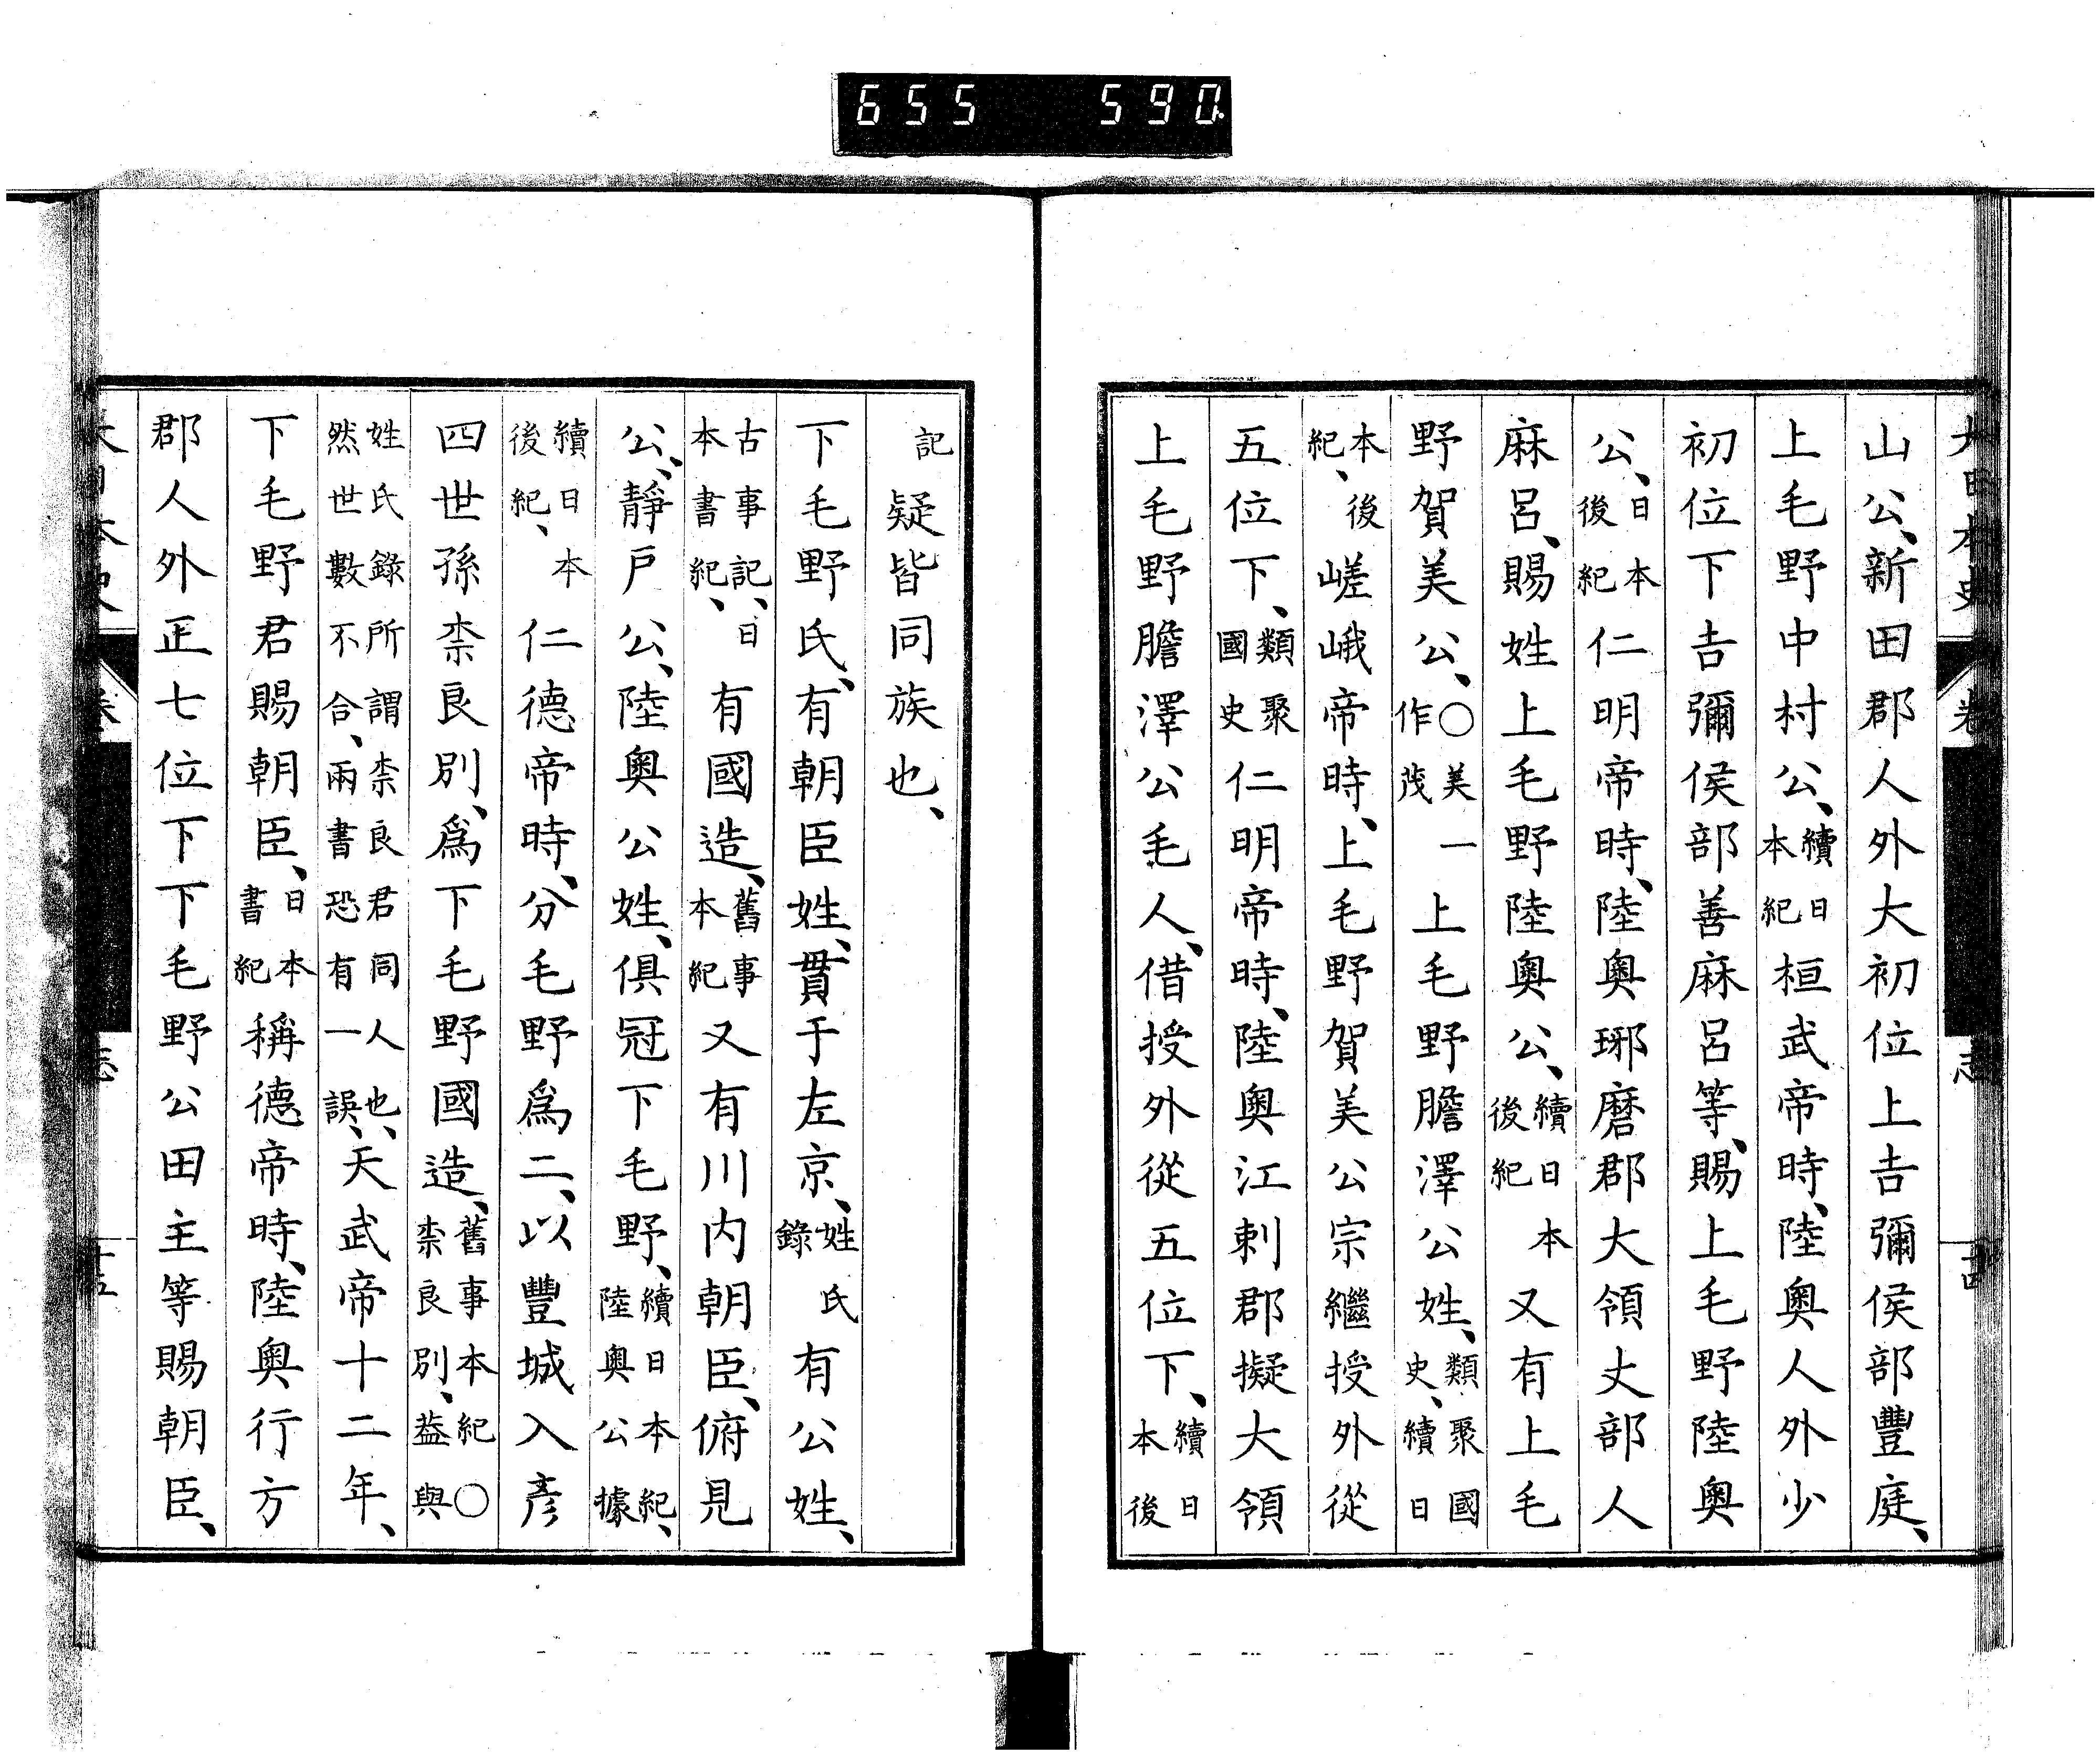 655 590
大日本史 卷 志
山公、新田郡人外大初位上吉彌侯部豐庭、
上毛野中村公、續日本紀桓武帝時、陸奧人外少
初位下吉彌侯部善麻呂等、賜上毛野陸奧
公、日本後紀仁明帝時、陸奧琊磨郡大領丈部人
麻呂、賜姓上毛野陸奧公、續日本後紀又有上毛
野賀美公、○美一作茂上毛野膽澤公姓、類聚國史、續日
本後紀、嵯峨帝時、上毛野賀美公宗繼授外從
五位下、類聚國史仁明帝時、陸奧江刺郡擬大領
上毛野膽澤公毛人、借授外從五位下、續日本後
記疑皆同族也、
下毛野氏、有朝臣姓、貫于左京、姓氏錄有公姓、
古事記、日本書紀、有國造、舊事本紀又有川内朝臣、俯見
公、靜戶公、陸奧公姓、俱冠下毛野、續日本紀、陸奧公據
續日本後紀、仁德帝時、分毛野爲二、以豐城入彥
四世孫柰良別、爲下毛野國造、舊事本紀○柰良別、益與
姓氏錄所謂柰良君同人也、然世數不合、兩書恐有一誤、天武帝十二年、
下毛野君賜朝臣、日本書紀稱德帝時、陸奧行方
郡人外正七位下下毛野公田主等賜朝臣、
大日本史 卷 志 十五